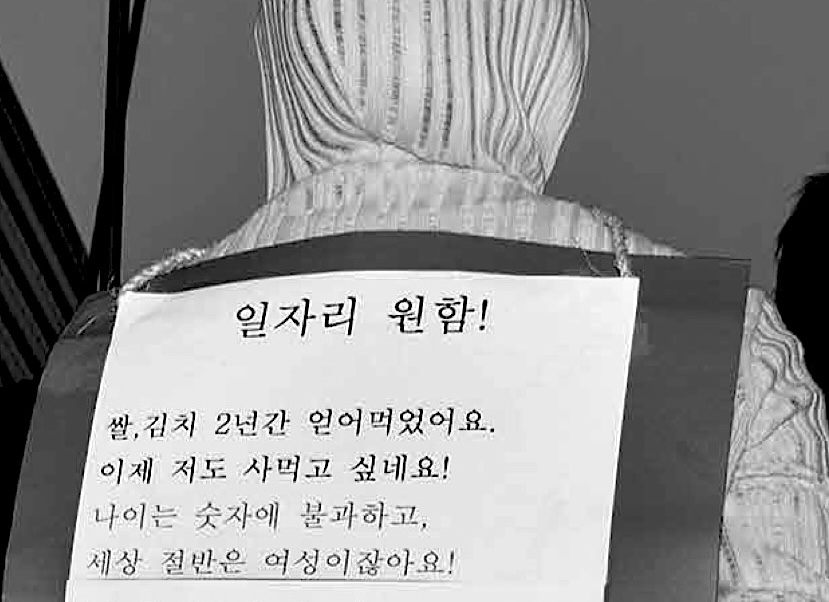 일자리 원함!
쌀,김치 2년간 얻어먹었어요.
이제 저도 사먹고 싶네요!
나이는 숫자에 불과하고,
세상 절반은 여성이잖아요!